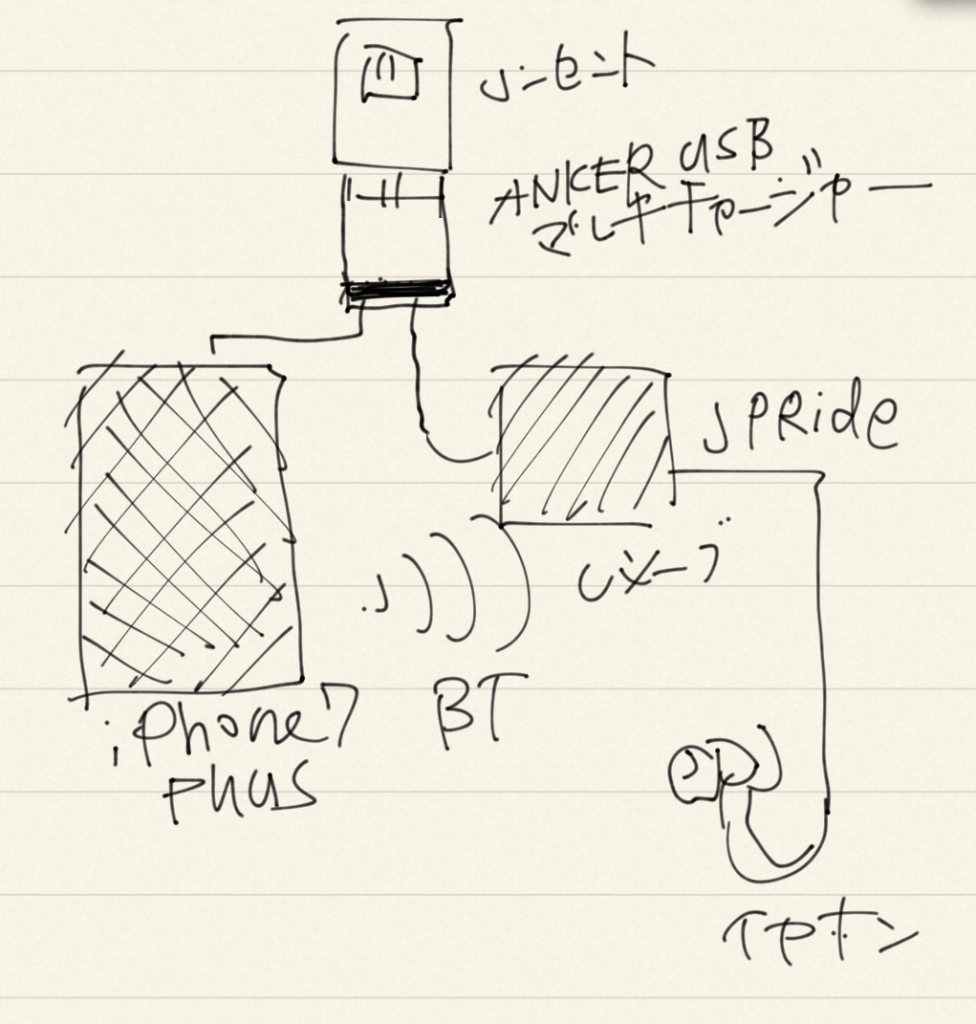 コンセント
ANKER USB
マルチチャージャー
JPRide
レシーバー
BT
iPhone7
PLUS
イヤホン